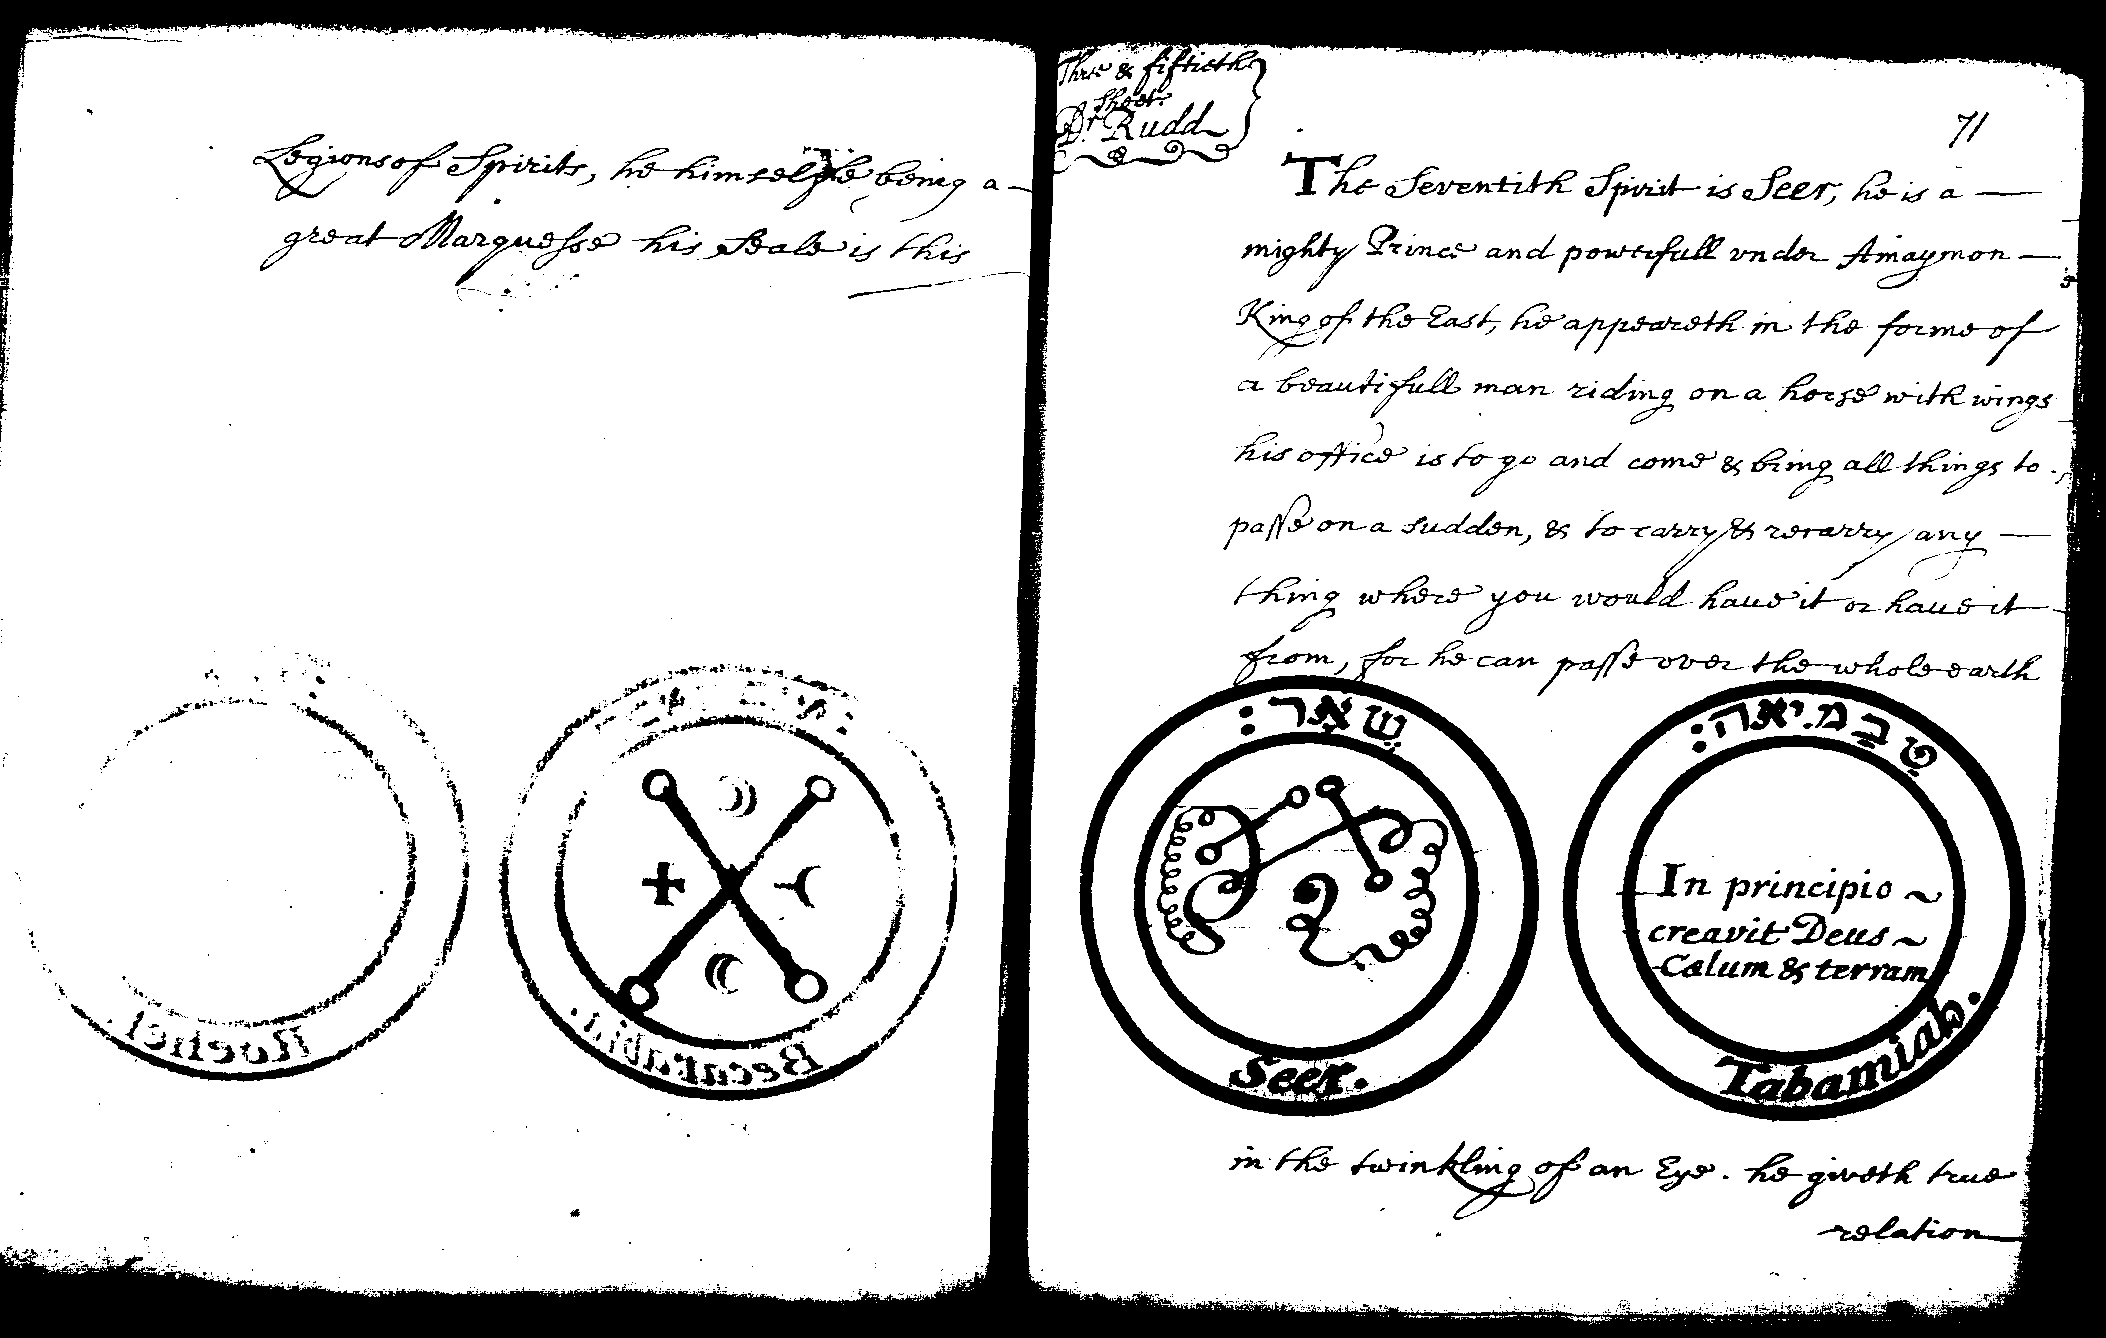 Legions of Spirits, he himselfe being a
great Marquesse his Seale is this
Rochel
Becarabin.
Three & fiftieth
Sheet.
Dr. Rudd
71
The Seventith Spirit is Seer, he is a
mighty Prince and powerfull vnder Amaymon
King of the East, he appeareth in the forme of
a beautifull man riding on a horse with wings
his office is to go and come & bring all things to
passe on a sudden, & to carry & recarry any
thing where you would haue it or haue it
from, for he can passe over the whole earth
שאר:
Seer.
טבמיאה:
In principio
creavit Deus
Cælum & terram
Tabamiah.
in the twinkling of an Eye. he giveth true
relation